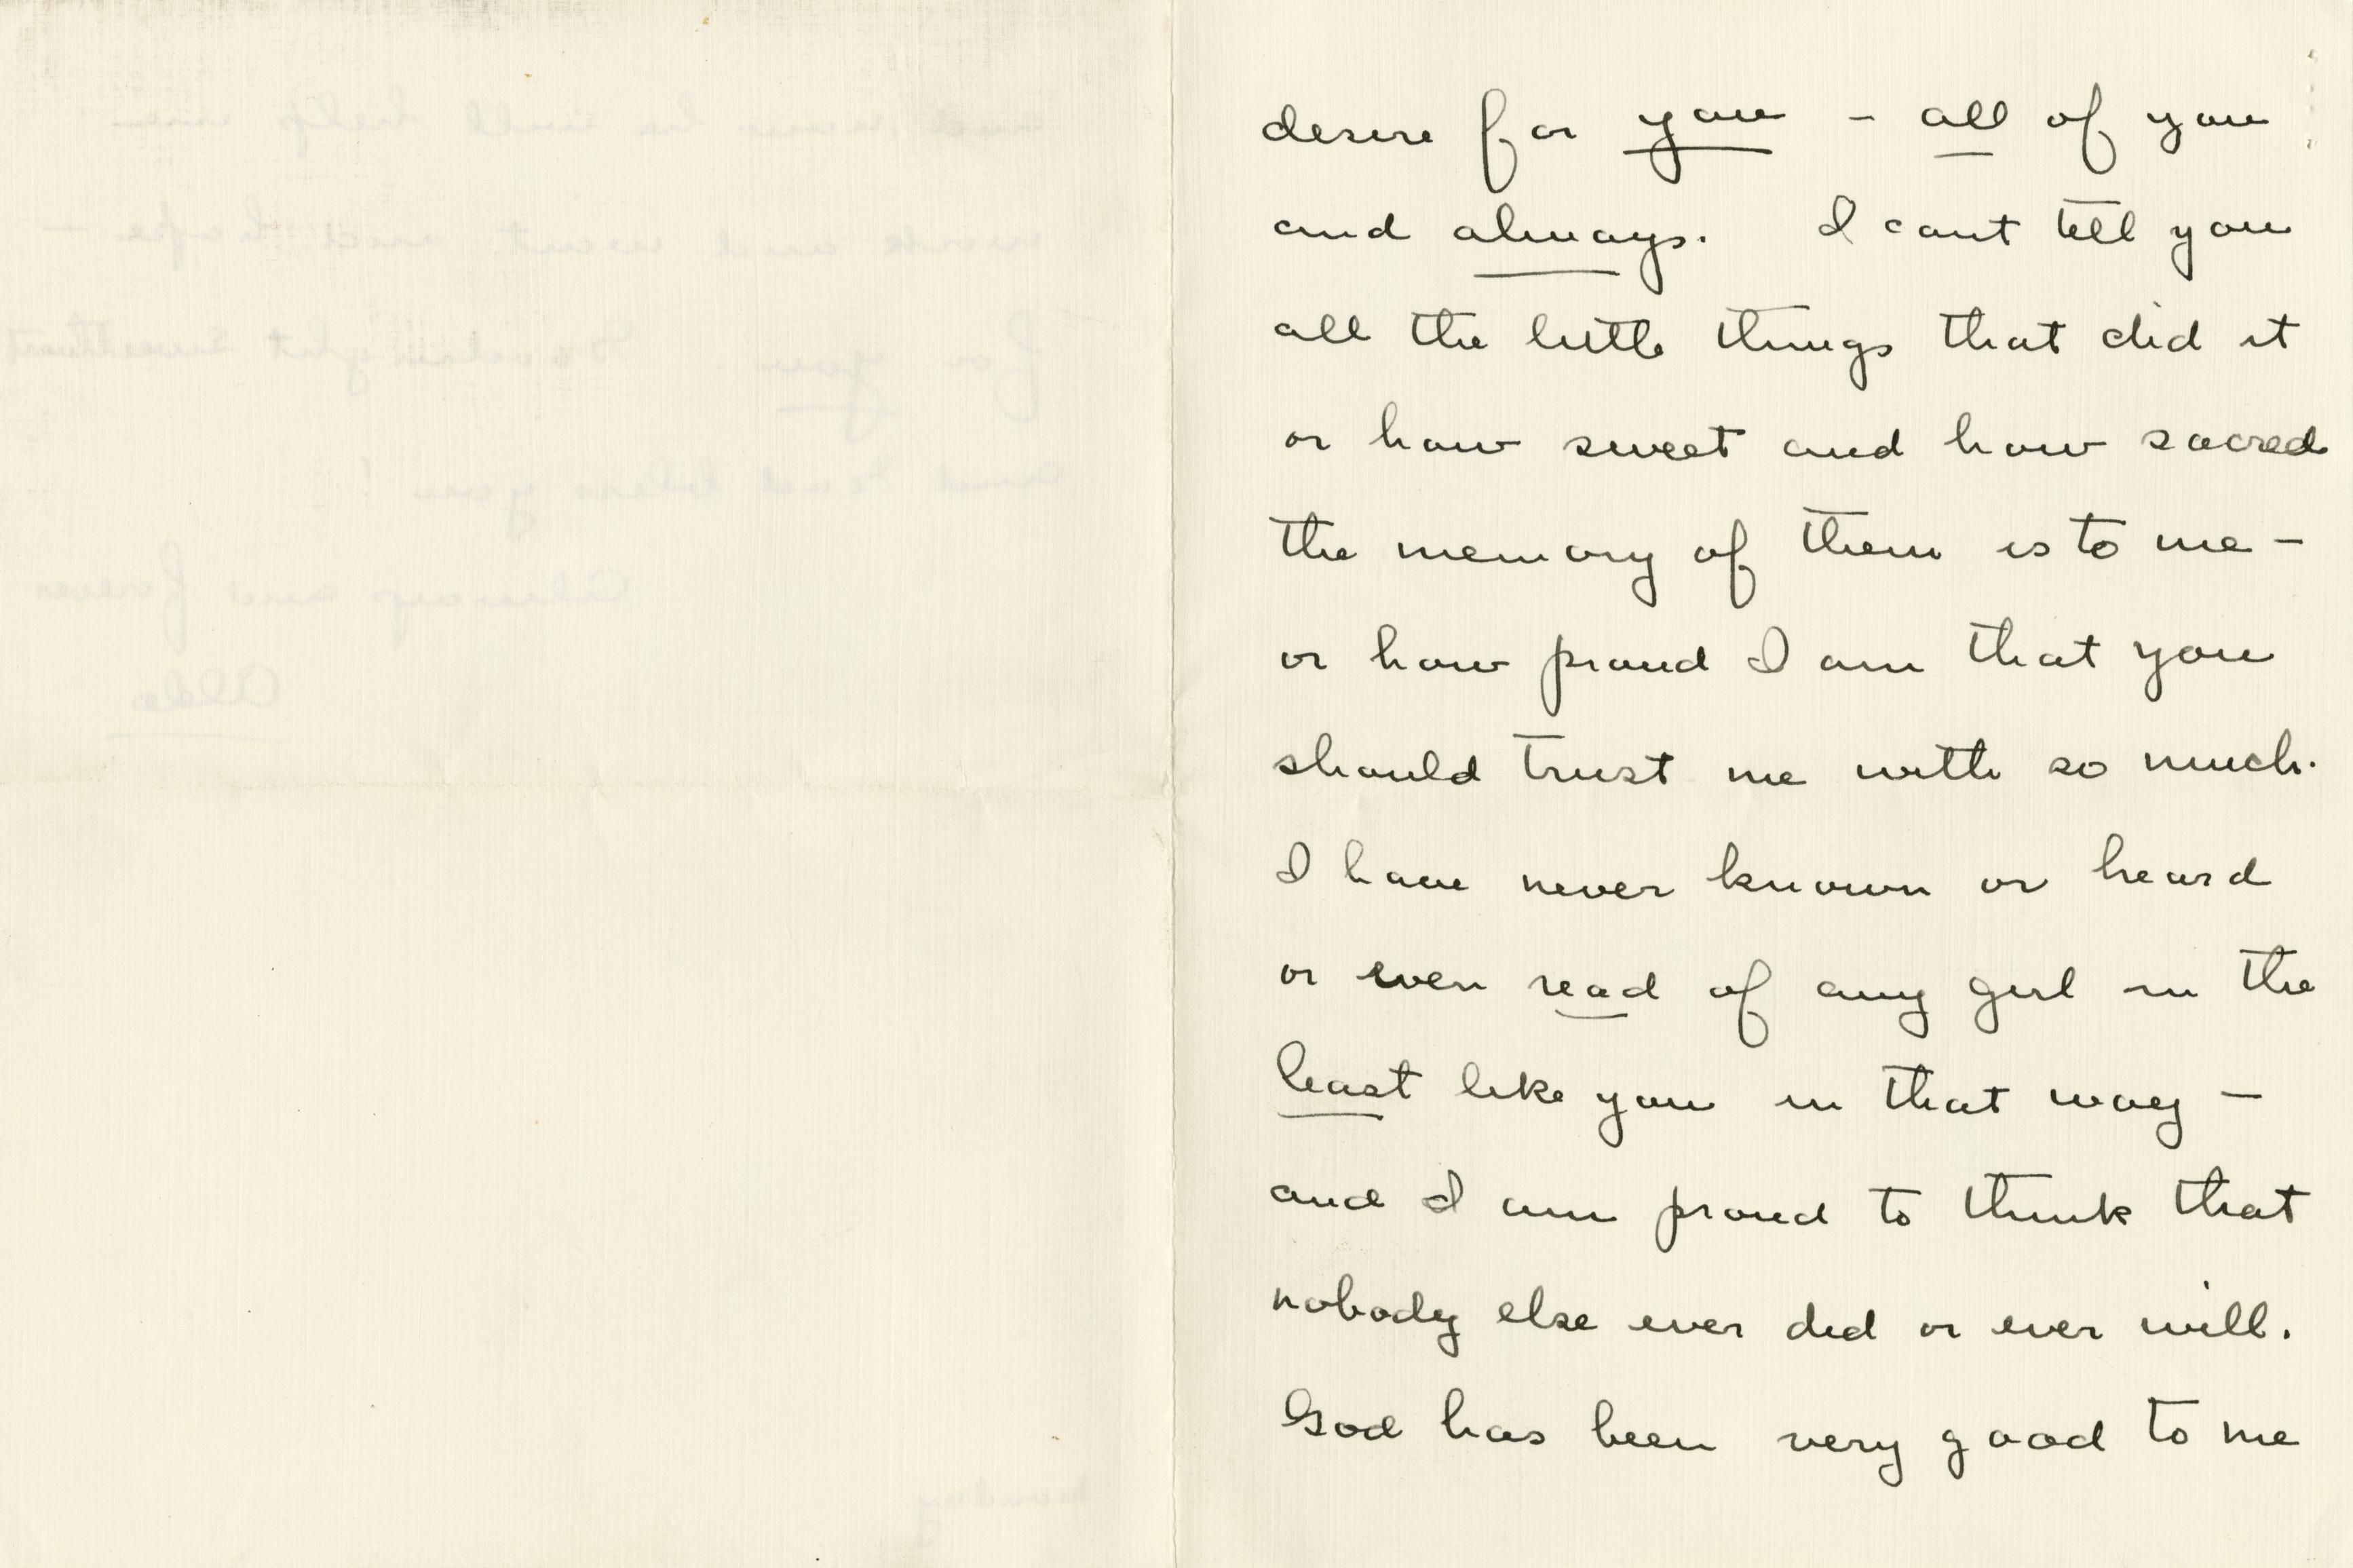 desire for you - all of you
and always. I cant tell you
all the little things that did it
or how sweet and how sacred
the memory of them is to me -
or how proud I am that you
should trust me with so much.
I have never known or heard
or even read of any girl in the
least like you in that way -
and I am proud to think that
nobody else ever did or ever will.
God has been very good to me